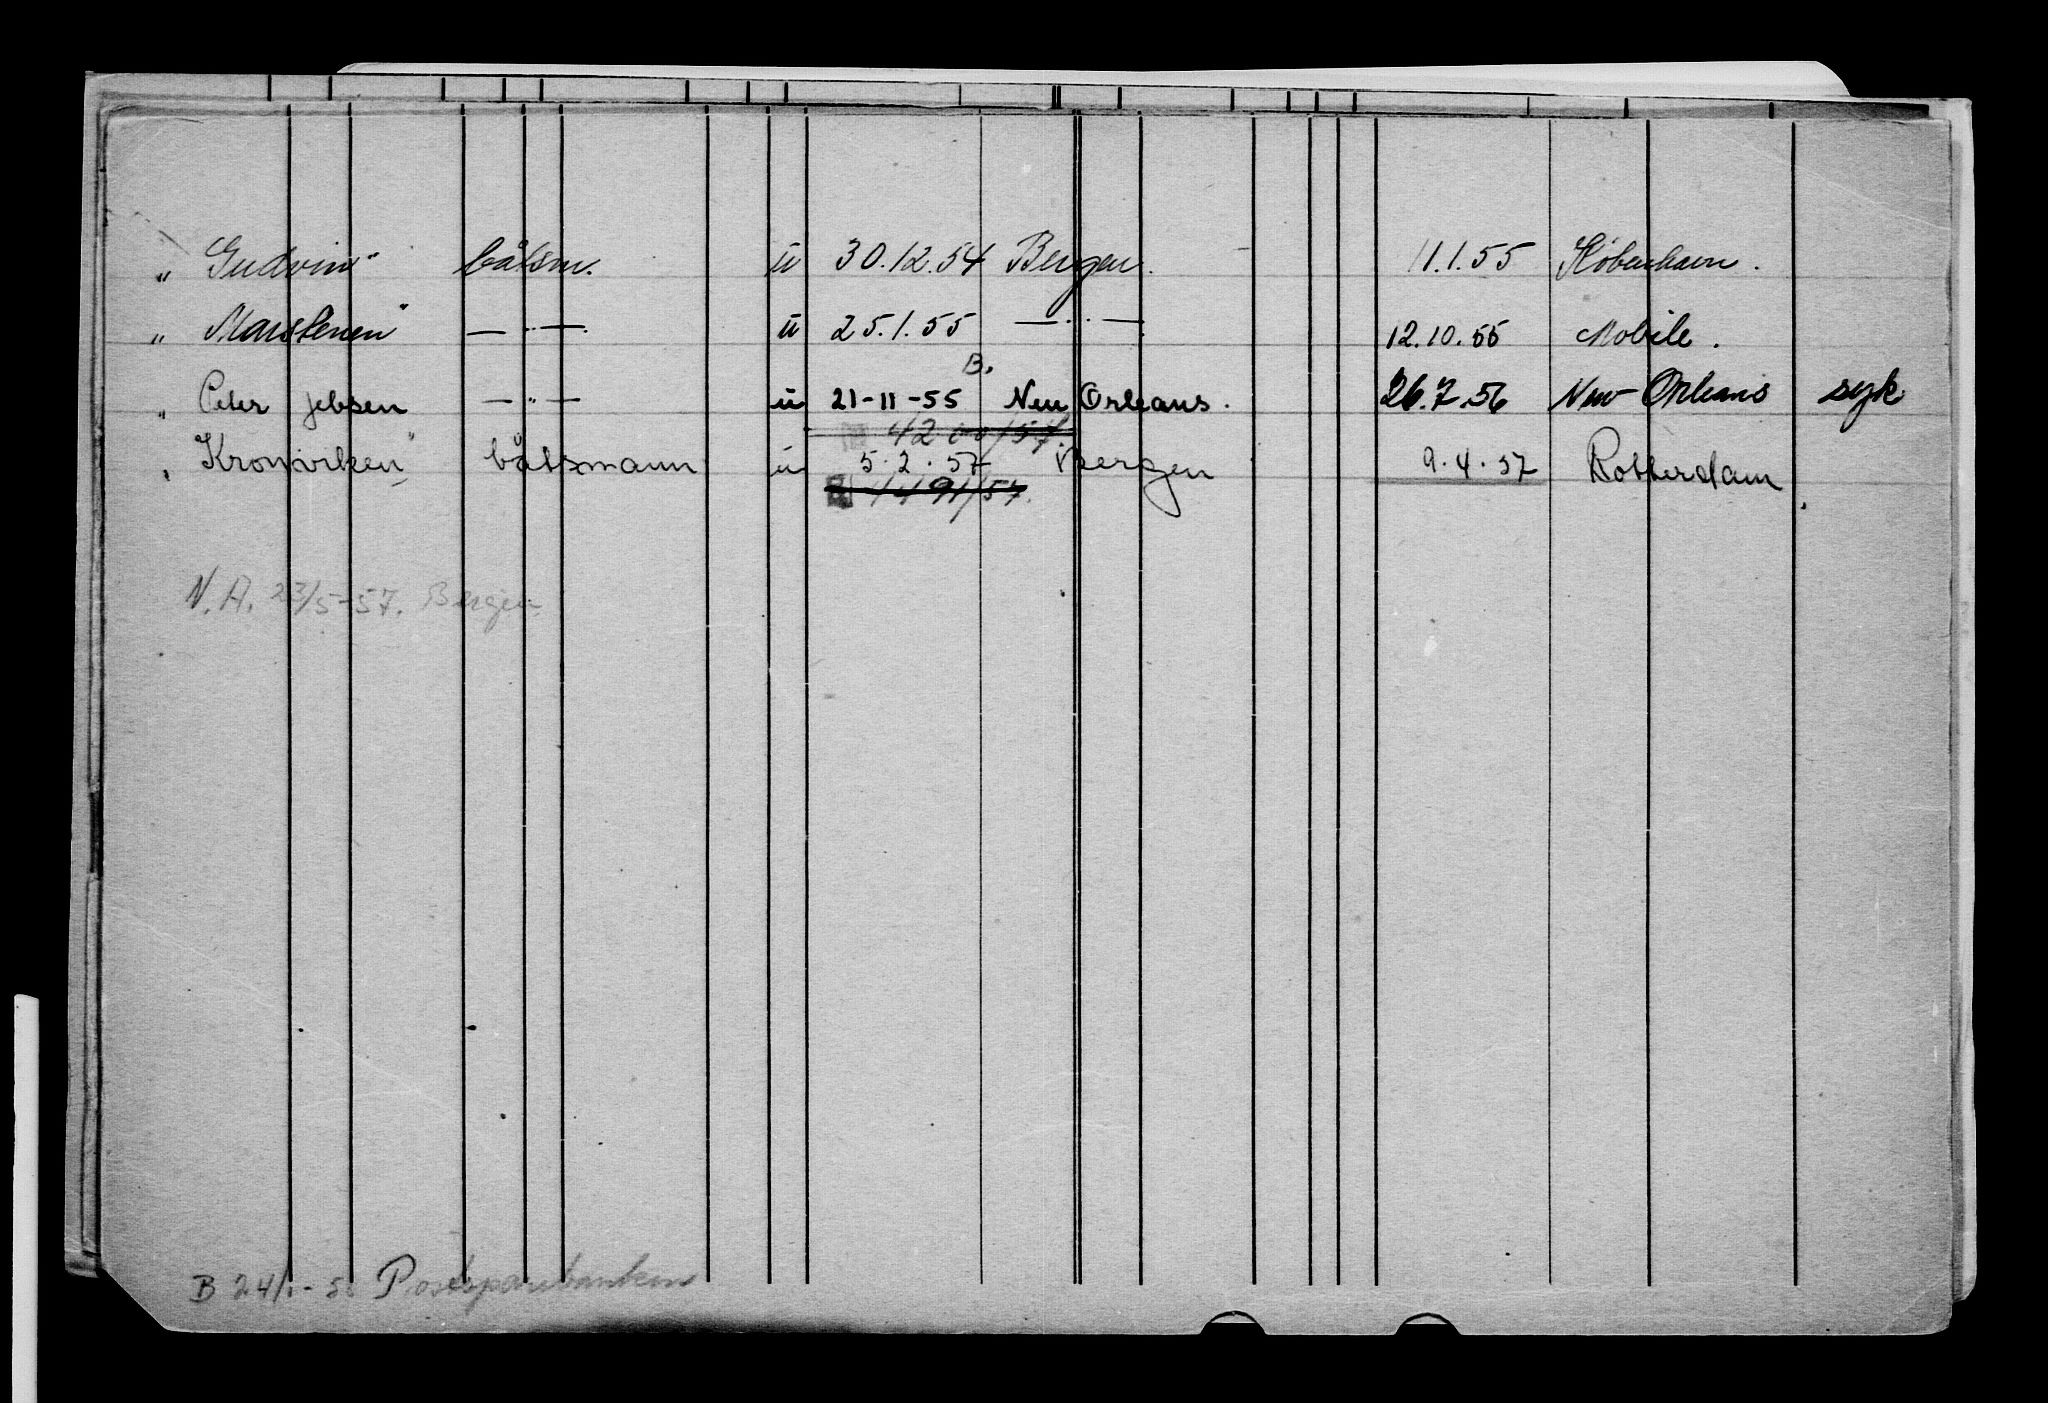 „ Gudvin" båtsm. u 30.12.54 Bergen. 11.1.55 København.
„ Marstenen" — " — u 25.1.55 — " — 12.10.55 Mobile.
B.
„ Peter Jebsen — " — u 21-11-55 New Orleans. 26.7.56 New Orleans syk
4200/57
„ Kronviken" båtsmann u 5.2.57 Bergen 9.4.57 Rotterdam.
4491/57.
N.A. 23/5-57. Bergen.
B 24/1-58 Postsparebanken